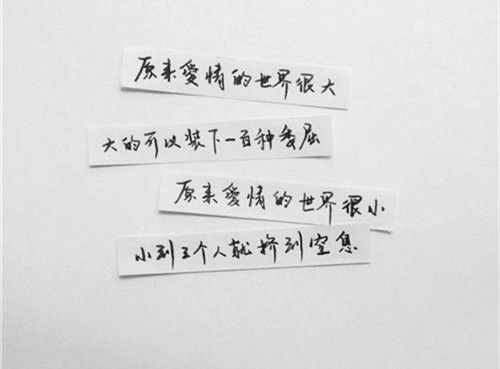 原来愛情的世界很大
大的可以装下一百种委屈
原来愛情的世界很小
小到三个人就挤到窒息